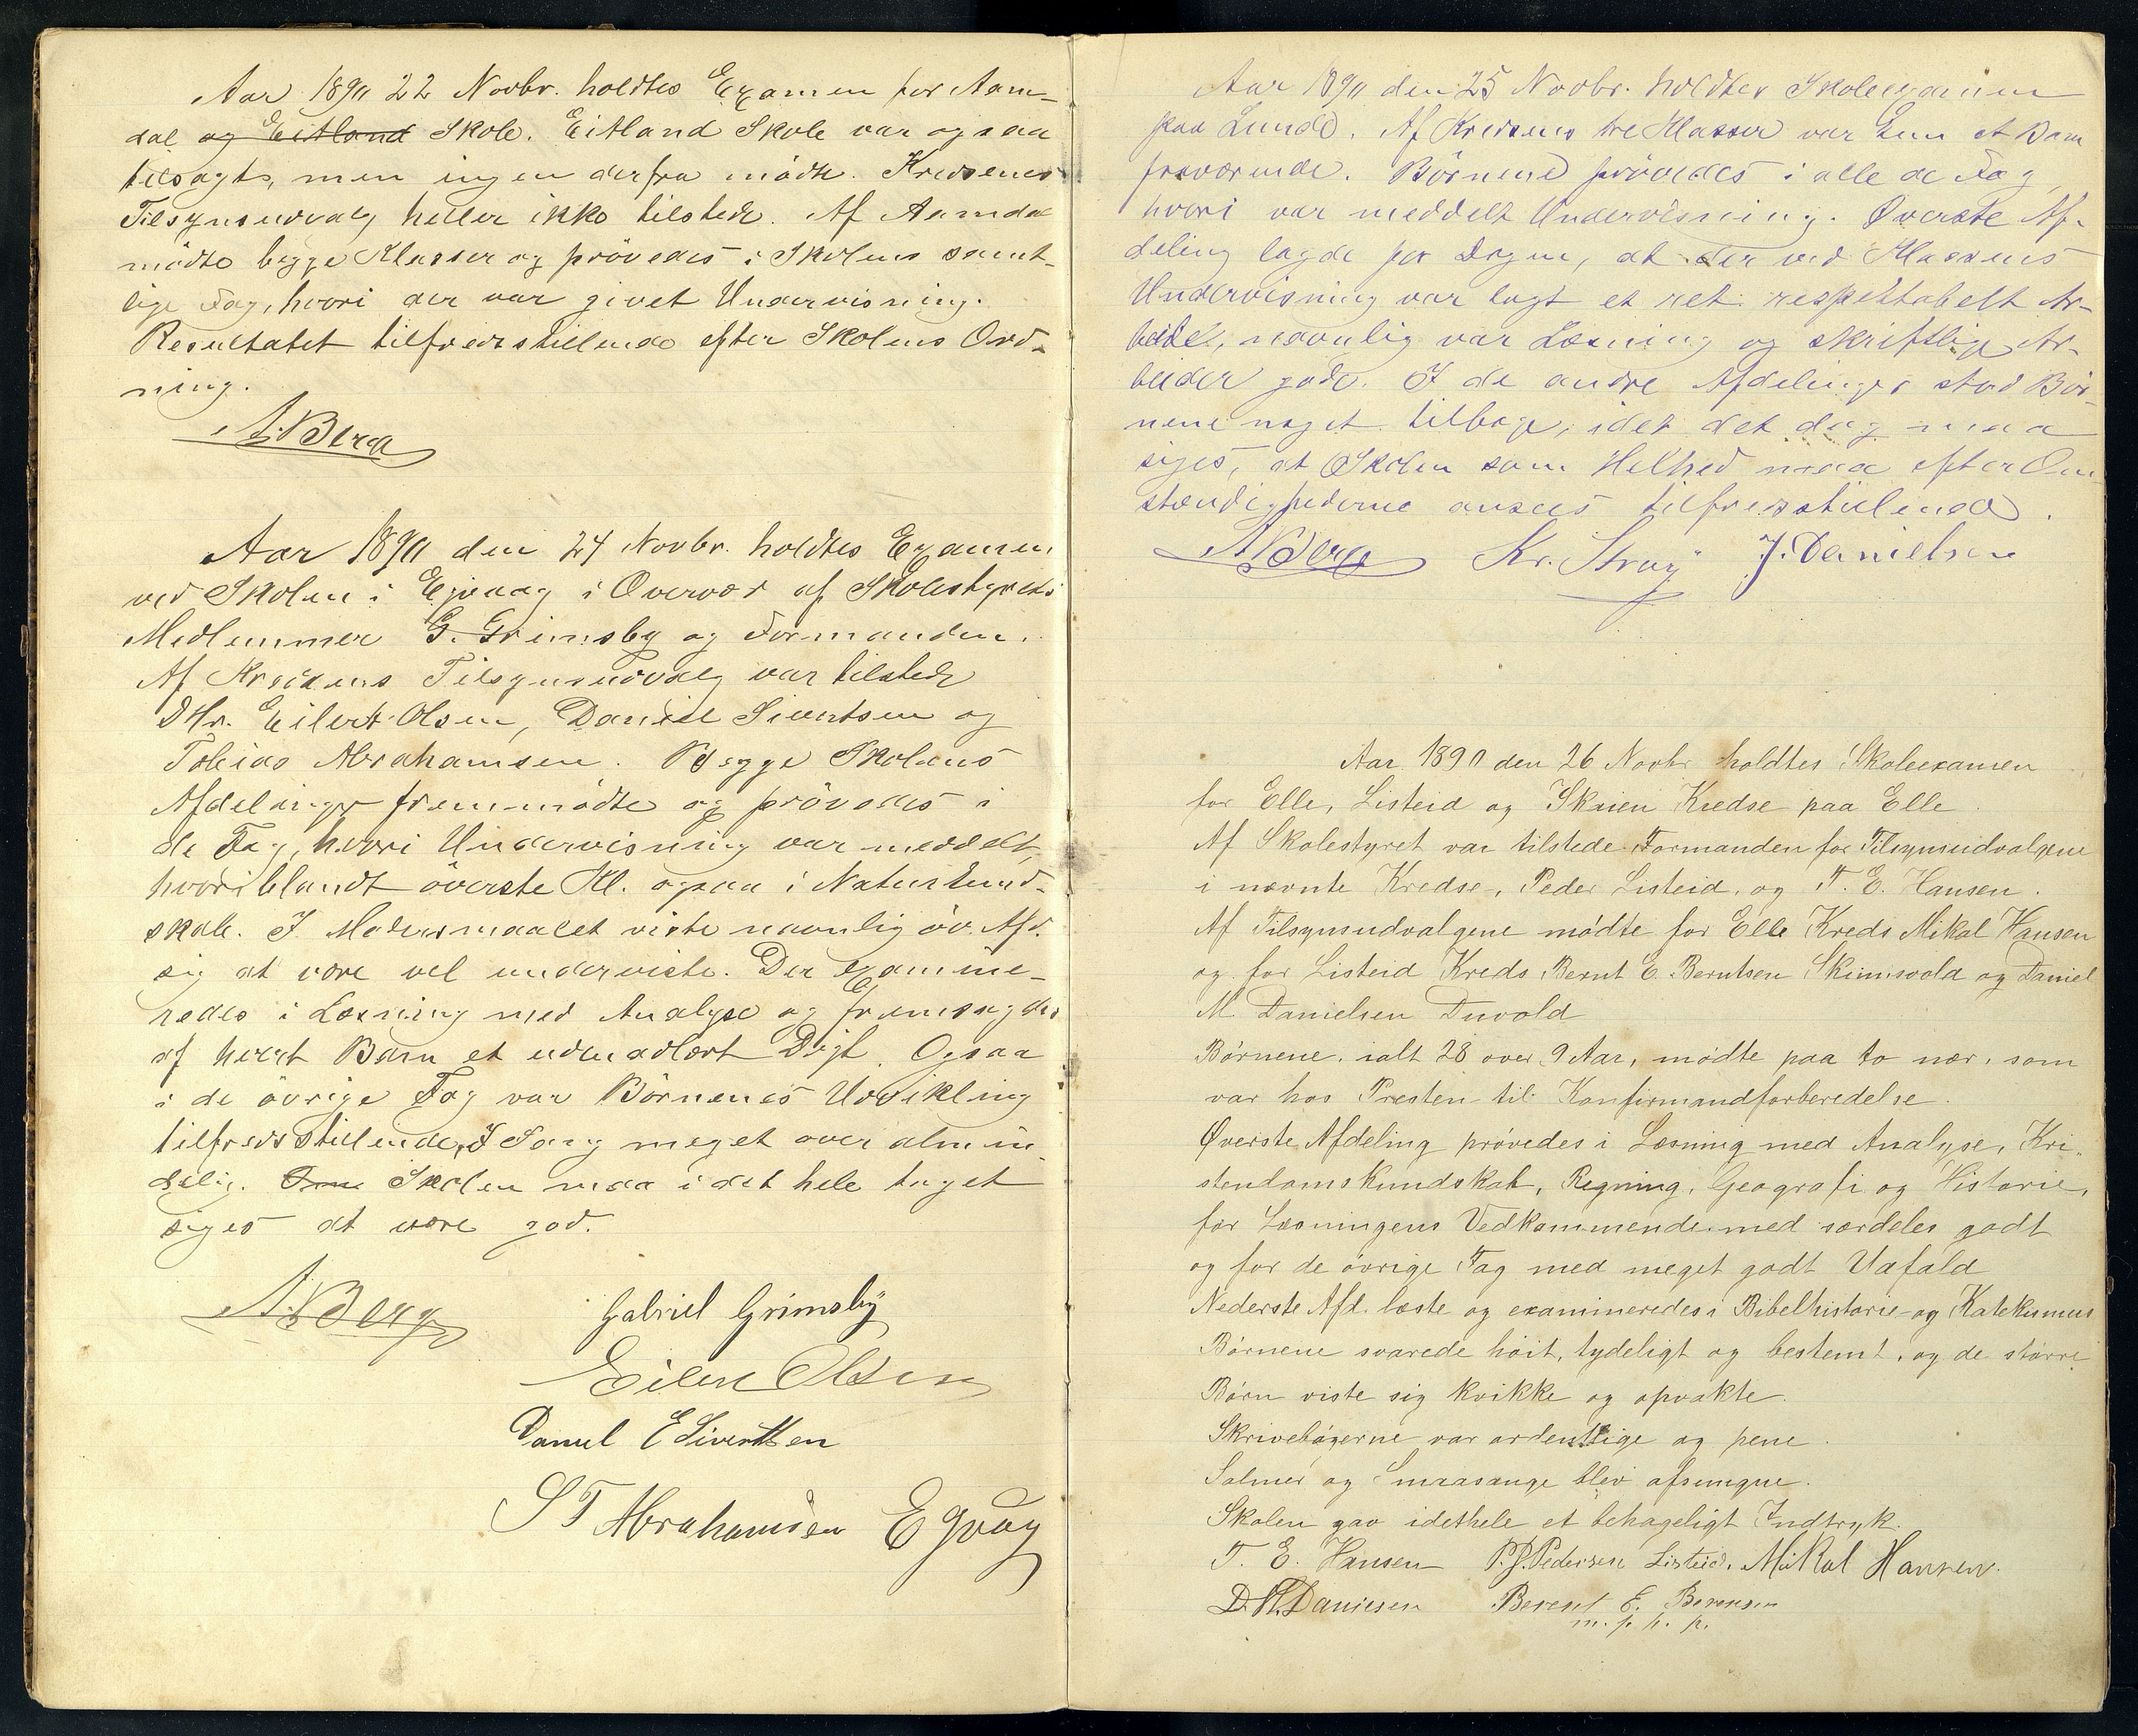 Aar 1890 22 Novbr. holdtes Examen for Aam-
dal og Eitland Skole. Eitland Skole var ogsaa
tilsagt, men ingen derfra mödte. Kredsenes
Tilsynsudvalg heller ikke tilstede. Af Aamdal
mödte begge Klasser og prövedes i Skolens samt-
lige Fag, hvori der var givet Undervisning.
Resultatet tilfredsstillende efter Skolens Ord-
ning.
A. Berg
Aar 1890 den 24 Novbr. holdtes Examen
ved Skolen i Egvaag i Overvær af Skolestyrets
Medlemmer G. Grimsby og Formanden.
Af Kredsens Tilsynsudvalg var tilstede
DHr. Eilert Olsen, Daniel Sivertsen og
Tobias Abrahamsen. Begge Skolens
Afdelinger fremmödte og prövedes i
de Fag, hvori Undervisning var meddelt,
hvoriblandt överste Kl. ogsaa i Naturkund-
skab. I Modersmaalet viste navnlig öv. Afd.
sig at være vel underviste. Der examine-
redes i Læsning med Analyse og fremsagdes
af hvert Barn et udenadlært Digt. Ogsaa
i de övrige Fag var Börnenes Udvikling
tilfredsstillende, I Sang meget over almin-
delig. Skolen maa i det hele taget
siges at være god.
A. Berg Gabriel Grimsby
Eilert Olsen
Daniel E Sivertsen
S T Abrahamsen Egvag
Aar 1890 den 25 Novbr. holdtes Skoleexamen
paa Lunde. Af Kredsens tre Klasser var kun et Barn
fraværende. Börnene prövedes i alle de Fag,
hvori var meddelt Undervisning. Øverste Af-
deling lagde for Dagen, at der ved Klassens
Undervisning var lagt et ret respektabelt Ar-
beide, navnlig var Læsning og skriftlige Ar-
beider gode. I de andre Afdelinger stod Bör-
nene noget tilbage, idet det dog maa
siges, at Skolen som Helhed maa efter Om
stændighederne ansees tilfredsstillende.
A Berg Kr. Stray J. Danielsen
Aar 1890 den 26 Novbr holdtes Skoleexamen
for Elle, Listeid og Skeien Kredse paa Elle.
Af Skolestyret var tilstede Formanden for Tilsynsudvalgene
i nævnte Kredse, Peder Listeid, og T. E. Hansen.
Af Tilsynsudvalgene mødte for Elle Kreds Mikal Hansen
og for Listeid Kreds Bernt E. Berntsen Skimsvold og Daniel
M Danielsen Duvold
Børnene, ialt 28 over 9 Aar, mødte paa to nær, som
var hos Presten til Konfirmandforberedelse.
Øverste Afdeling prövedes i Læsning med Analyse, Kri-
stendomskundskab, Regning, Geografi og Historie,
for Læsningens Vedkommende med særdeles godt
og for de övrige Fag med meget godt Udfald
Nederste Afd. læste og examineredes i Bibelhistorie og Katekismus
Børnene svarede höit, tydeligt og bestemt, og de større
Børn viste sig kvikke og opvakte.
Skrivebøgerne var ordentlige og pene.
Salmer og Smaasange blev afsungne.
Skolen gav idethele et behageligt Indtryk.
T. E. Hansen P. J. Pedersen Listeid. Mikal Hansen.
D. M. Danielsen Berent E. Berensen
m. f. p. p.